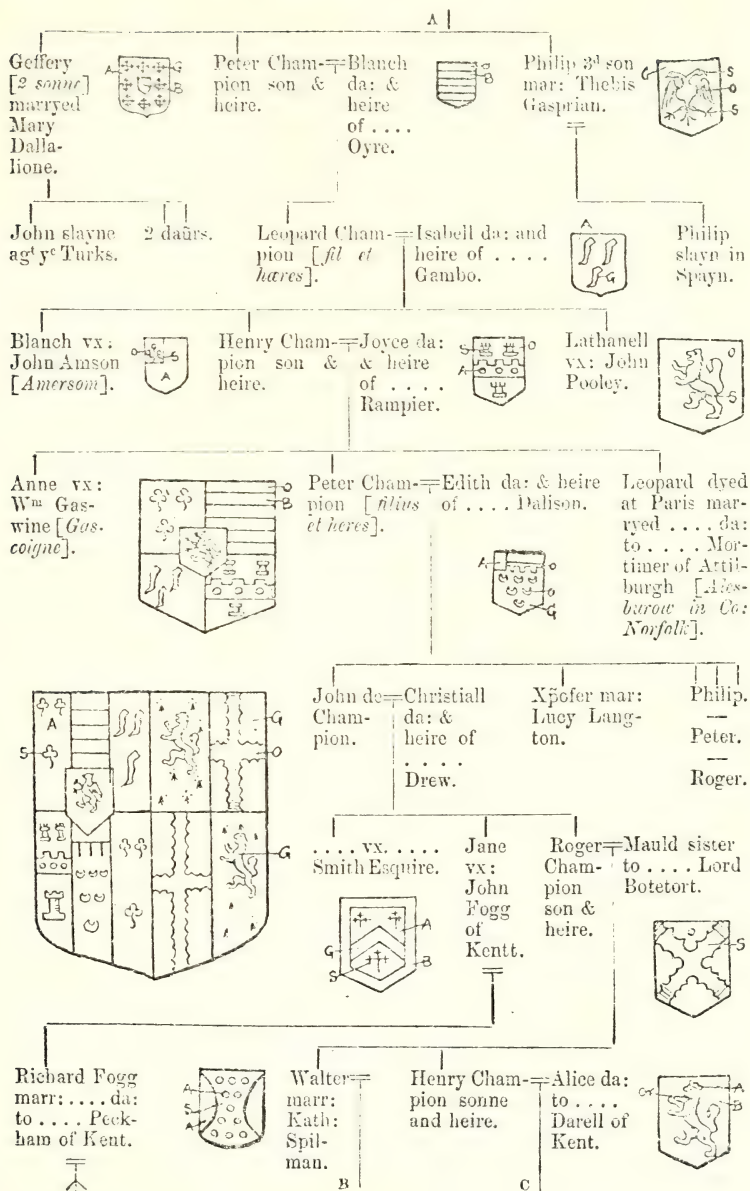 A
Geffery
[2 sonne]
marryed
Mary
Dalla-
lione.
A
G
B
Peter Cham-
pion son &
heire.
Blanch
da: &
heire
of . . . .
Oyre.
O
B
Philip 3d son
mar: Thebis
Gasprian.
G
S
O
S
John slayne
agt ye Turks.
2 daũrs.
Leopard Cham-
pion [fil et
hæres].
Isabell da: and
heire of . . . .
Gambo.
A
G
Philip
slayn in
Spayn.
Blanch vx:
John Amson
[Amersom].
O
S
A
Henry Cham-
pion son &
heire.
Joyce da:
& heire
of . . . .
Rampier.
S
O
A
Lathanell
vx: John
Pooley.
O
S
Anne vx:
Wm Gas-
wine [Gas-
coigne].
O
B
Peter Cham-
pion [filius
et heres].
Edith da: & heire
of . . . . Dalison.
A
O
O
G
Leopard dyed
at Paris mar-
ryed . . . . da:
to . . . . Mor-
timer of Artil-
burgh [Ates-
burow in Co:
Norfolk].
A
S
G
O
G
John de
Cham-
pion.
Christiall
da: &
heire of
. . . .
Drew.
Xp̃ofer mar:
Lucy Lang-
ton.
Philip.
—
Peter.
—
Roger.
. . . . vx. . . . .
Smith Esquire.
A
G
S
B
Jane
vx:
John
Fogg
of
Kentt.
Roger
Cham-
pion
son &
heire.
Mauld sister
to . . . . Lord
Botetort.
S
Richard Fogg
marr: . . . . da:
to . . . . Peck-
ham of Kent.
A
S
A
Walter
marr:
Kath:
Spil-
man.
B
Henry Cham-
pion sonne
and heire.
Alice da:
to . . . .
Darell of
Kent.
C
A
B